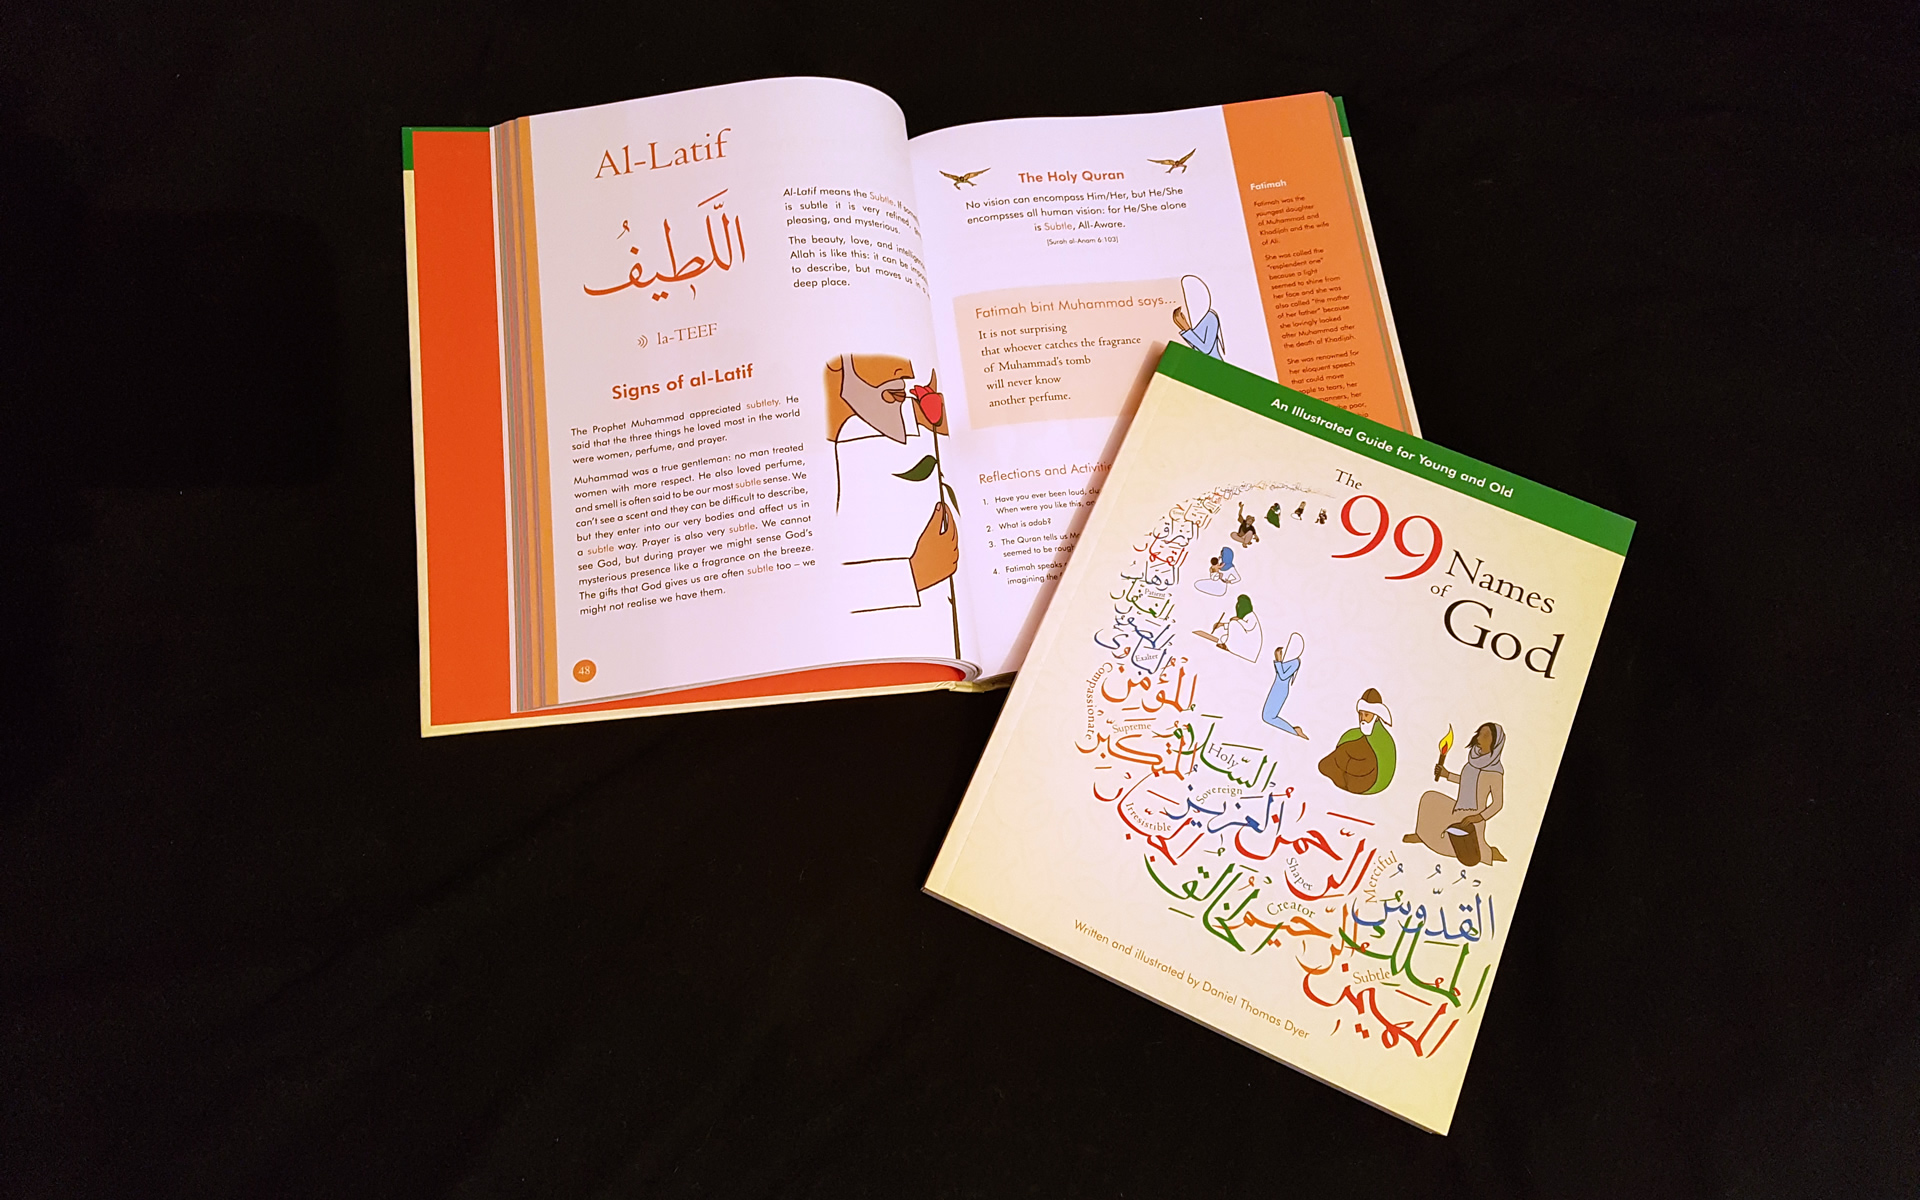 Al-Latif
اللَّطِيفُ
la-TEEF
Al-Latif means the Subtle. If
is subtle it is very refined,
pleasing, and mysterious.
The beauty, love, and
Allah is like this: it can be
to describe, but moves us in a
deep place.
Signs of al-Latif
The Prophet Muhammad appreciated subtlety. He
said that the three things he loved most in the world
were women, perfume, and prayer.
Muhammad was a true gentleman: no man treated
women with more respect. He also loved perfume,
and smell is often said to be our most subtle sense. We
can't see a scent and they can be difficult to describe,
but they enter into our very bodies and affect us in
a subtle way. Prayer is also very subtle. We cannot
see God, but during prayer we might sense God's
mysterious presence like a fragrance on the breeze.
The gifts that God gives us are often subtle too – we
might not realise we have them.
48
The Holy Quran
No vision can encompass Him/Her, but He/She
encompsses all human vision: for He/She alone
is Subtle, All-Aware.
[Surah al-Anam 6:103]
Fatimah bint Muhammad says...
It is not surprising
that whoever catches the fragrance
of Muhammad's tomb
will never know
another perfume.
Reflections and
1. Have you ever been loud,
When were you like this,
2. What is adab?
3. The Quran tells us
seemed to be
4. Fatimah speaks
imagining the
Fatimah
Fatimah was the
youngest daughter
of Muhammad and
Khadijah and the wife
of Ali.
She was called the
"resplendent one"
because a light
seemed to shine from
her face and she was
also called "the mother
of her father" because
she lovingly looked
after Muhammad after
the death of Khadijah.
She was renowned for
her eloquent speech
that could move
people to tears, her
An Illustrated Guide for Young and Old
The
99
Names
of
God
القهار
Patient
الغفار
Exalter
المؤمن
Compassionate
Supreme
المتكبر
السلام
Holy
Sovereign
العزيز
Irresistible
الجبار
الرحمن
Shaper
Merciful
الخالق
Creator
الرحيم
القدوس
الملك
Subtle
المهيمن
Written and illustrated by Daniel Thomas Dyer